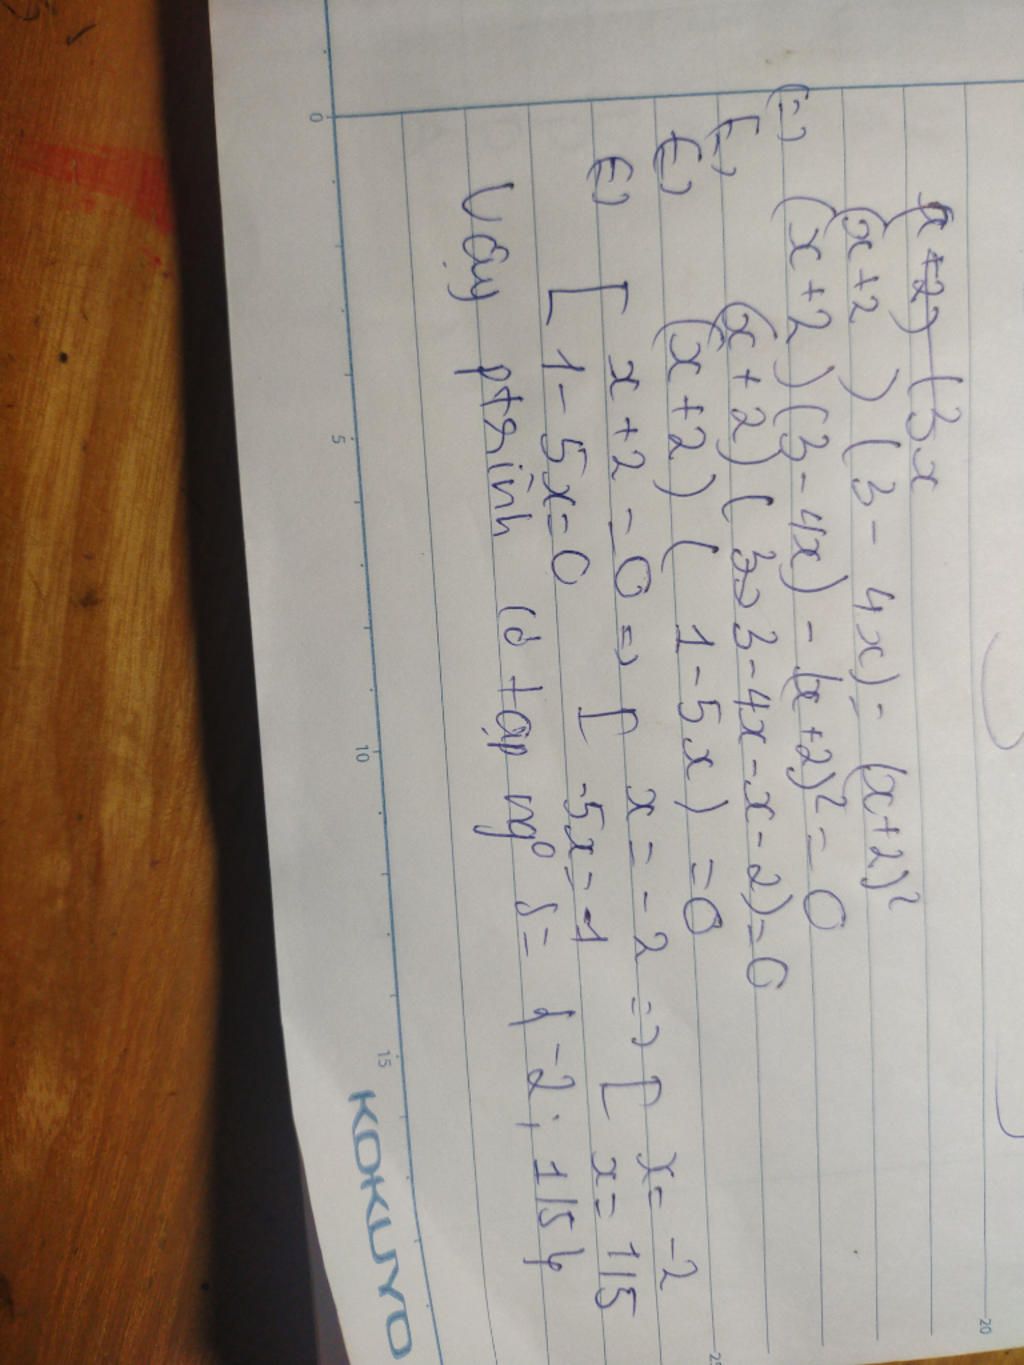 (x+2)(3x
(x+2)(3-4x)=(x+2)²
(=) (x+2)(3-4x)-(x+2)²=0
(=) (x+2)(3-4x-x-2)=0
(=) (x+2)(1-5x)=0
(=) [ x+2=0 => [ x=-2 => [ x=-2
[ 1-5x=0 [ -5x=-1 [ x=1/5
Vậy ptrình có tập ng⁰ S={-2; 1/5}
0 5 10 15 20 25
KOKUYO